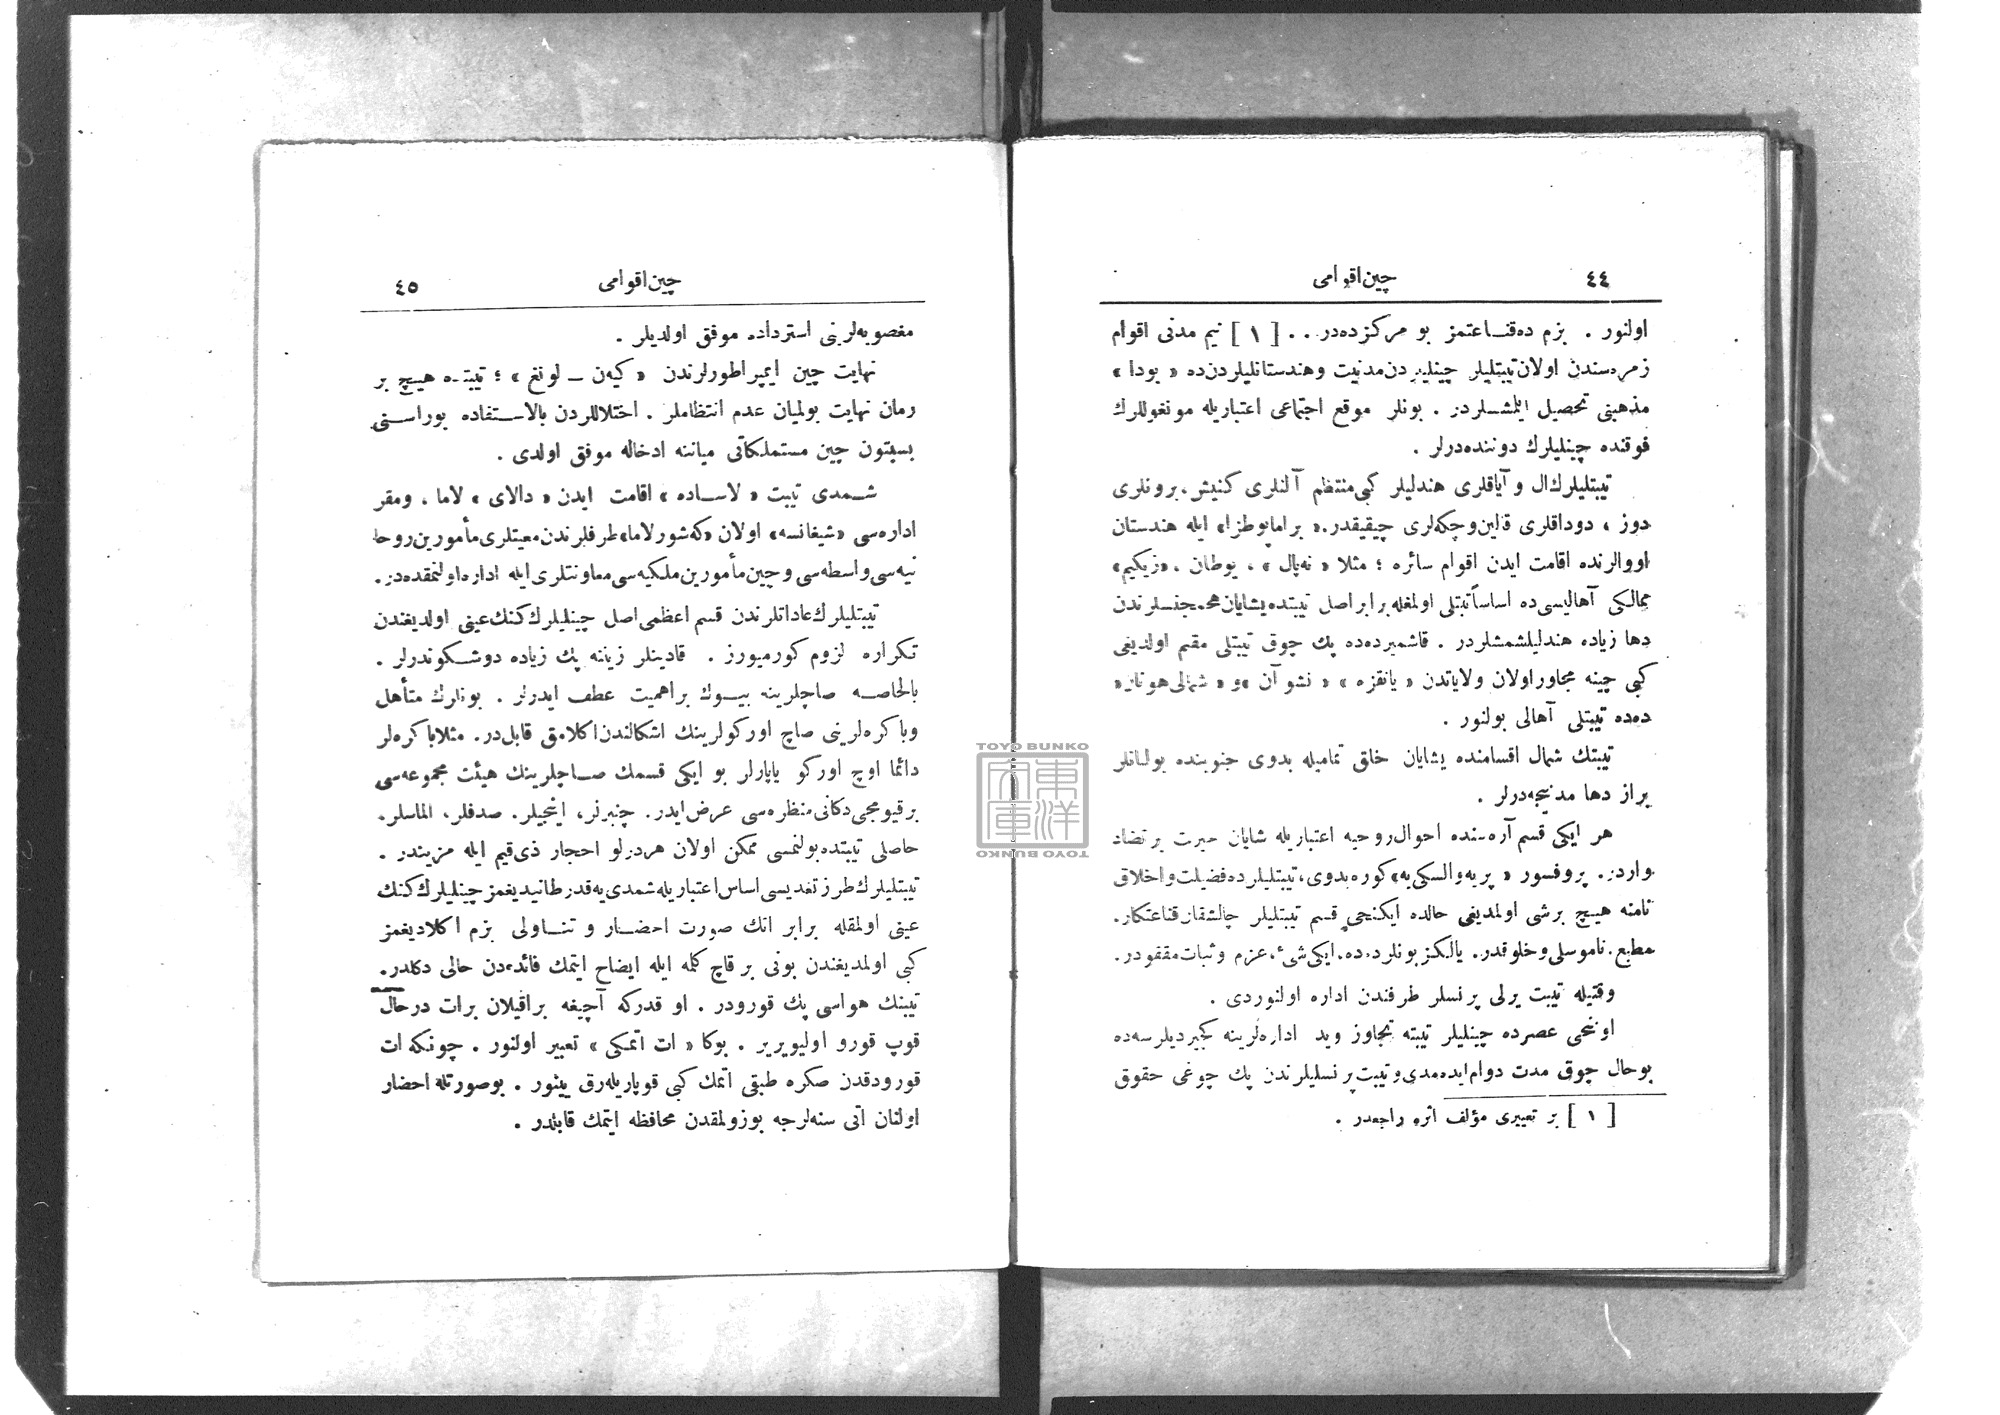 ٤٤
چین اقوامی
اولنور . بزم ده‌قنـاعتمز بو مرکزده‌در... [ ١ ] نیم مدنی اقوام
زمره‌سندن اولان‌تیبتلیلر چینلیلردن‌مدنیت وهندستانلیلردن‌ده « بودا »
مذهبنی تحصیل ایلمشلردر . بونلر موقع اجتماعی اعتباریله مونغوللرك
فوقنده چینلیلرك دوننده‌درلر .
تیبتلیلرك‌ال و آیاقلری هندلیلر کبی‌منتظم آلنلری کنیش، برونلری
دوز ، دوداقلری قالین‌وچکه‌لری چیقیقدر.« براماپوطرا» ایله هندستان
اووالرنده اقامت ایدن اقوام سائره ؛ مثلا « نه‌پال » ، بوطان ، «زیکیم»
ممالکی آهالیسی‌ده اساساً‌تبتلی اولمغله‌برابر اصل تیبتده‌یشایان‌هم‌جنسلرندن
دها زیاده هندلیلشمشلردر . قاشمیرده‌ده پك چوق تیبتلی مقیم اولدیغی
کبی چینه مجاوراولان ولایاتدن « یانقزه » « نشوآن »و« شمالی‌هونان«
ده‌ده تیبتلی آهالی بولنور .
تیبتك شمال اقسامنده یشایان خلق تمامیله بدوی جنوبنده بولنانلر
براز دها مدنیجه‌درلر .
هر ایکی قسم آره‌سنده احوال‌روحیه اعتباریله شایان حیرت برتضاد
واردر. پروفسور « پریه‌والسکی‌یه»کوره‌بدوی، تیبتلیلرده‌فضیلت‌واخلاق
نامنه هیـچ برشی اولمدیغی حالده ایکنجی قسم تیبتلیلر چالشقان‌قناعتکار.
مطیع. ناموسلی‌وخلوقدر. یالکزبونلرده‌ده.ایکی‌شیء، عزم وثبات‌مفقودر.
وقتیله تیبت یرلی پرنسلر طرفندن اداره اولنوردی .
اونجی عصرده چینلیلر تیبته تجاوز وید اداره‌لرینه کچیردیلرسه‌ده
بوحال چوق مدت دوام‌ایده‌مدی‌وتیبت‌پرنسلیلرندن پك چوغی حقوق
[ ١ ] بر تعبیری مؤلف اثره راجعدر .
٤٥
چین اقوامی
مغصوبه‌لرینی استرداده موفق اولدیلر .
نهایت چین ایمپراطورلرندن « کیه‌ن ـ لونغ » ؛ تیبتـده هیـچ بر
زمان نهایت بولمیان عدم انتظاملر . اختلاللردن بالاسـتفاده بوراسـنی
بسبتون چین مستملکاتی میاننه ادخاله موفق اولدی .
شـمدی تیبت « لاسـاده » اقامت ایدن « دالای » لاما ، ومقر
اداره‌سی «شیغانسه» اولان «که‌شورلاما»طرفلرندن‌معیتلری‌مأمورین‌روحا
نیه‌سی‌واسطه‌سی و چین‌مأمورین‌ملکیه‌سی‌معاونتلری‌ایله اداره‌اولنمقده‌در.
تیبتلیلرك‌عاداتلرندن قسم اعظمی‌اصل چینلیلرك‌کنك‌عینی اولدیغندن
تکراره لزوم کورمیورز . قادینلر زینته پك زیاده دوشـکوندرلر .
بالخاصـه صاچلرینه بیـوك براهمیت عطف ایدرلر . بونارك متأهل
وباکره‌لرینی صاچ اورکولرینك اشکالندن‌اکلامق قابل‌در. مثلاباکره‌لر
دائما اوچ اورکو یاپارلر بو ایکی قسمك صـاچلرینك هیئت مجموعه‌سی
برقیومجی‌دکانی‌منظره‌سی عرض‌ایدر. چنبرلر، اینجیلر. صدفلر، الماسلر.
حاصلی تیبتده‌بولنمسی ممکن اولان هردرلو احجار ذی‌قیم ایله مزیندر .
تیبتلیلرك‌طرز تغدیسی‌اساس‌اعتباریله‌شمدی‌یه‌قدرطانیدیغمزچینلیلرك‌کنك
عینی اولمقله برابر انك صورت احضـار و تنـاولی بزم اکلادیغمز
کبی اولمدیغندن بونی برقاچ کلمه ایله ایضاح ایتمك فائده‌دن حالی دکلدر.
تیبتك هواسی پك قورودر . او قدرکه آچیغه براقیلان برات درحال
قوپ قورو اولیویریر . بوکا « ات اتمکی » تعبیر اولنور . چونکه‌ات
قورودقدن صکره طبقی اتمك کبی قوپاریله‌رق یینور . بوصورتله‌احضار
اولنان اتی سنه‌لرجه بوزولمقدن محافظه ایتمك قابلدر .
TOYO BUNKO
東洋文庫
TOYO BUNKO